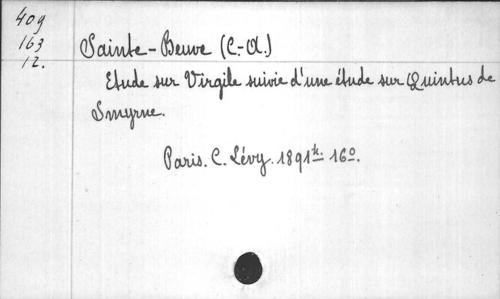 409
163
12.
Sainte-Beuve (C.-A.)
Etude sur Virgile suivie d'une étude sur Quintus de
Smyrne.
Paris. C. Lévy. 1891 16º.